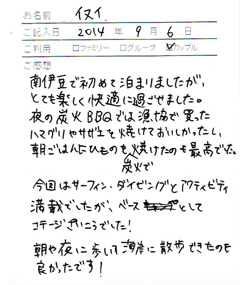 お名前
ご記入日 2014年 9月 6日
ご利用 □ファミリー □グループ ☑カップル
ご感想
南伊豆で初めて泊まりましたが、
とても楽しく快適に過ごせました。
夜の炭火BBQでは漁協で買った
ハマグリやサザエを焼けておいしかったし、
朝ごはんにひものも炭火で焼けたのも最高でした。
今回はサーフィン・ダイビングとアクティビティ
満載でしたが、ベースとして
コテージさいこうでした!
朝や夜に歩いて海岸に散歩できたのも
良かったです!